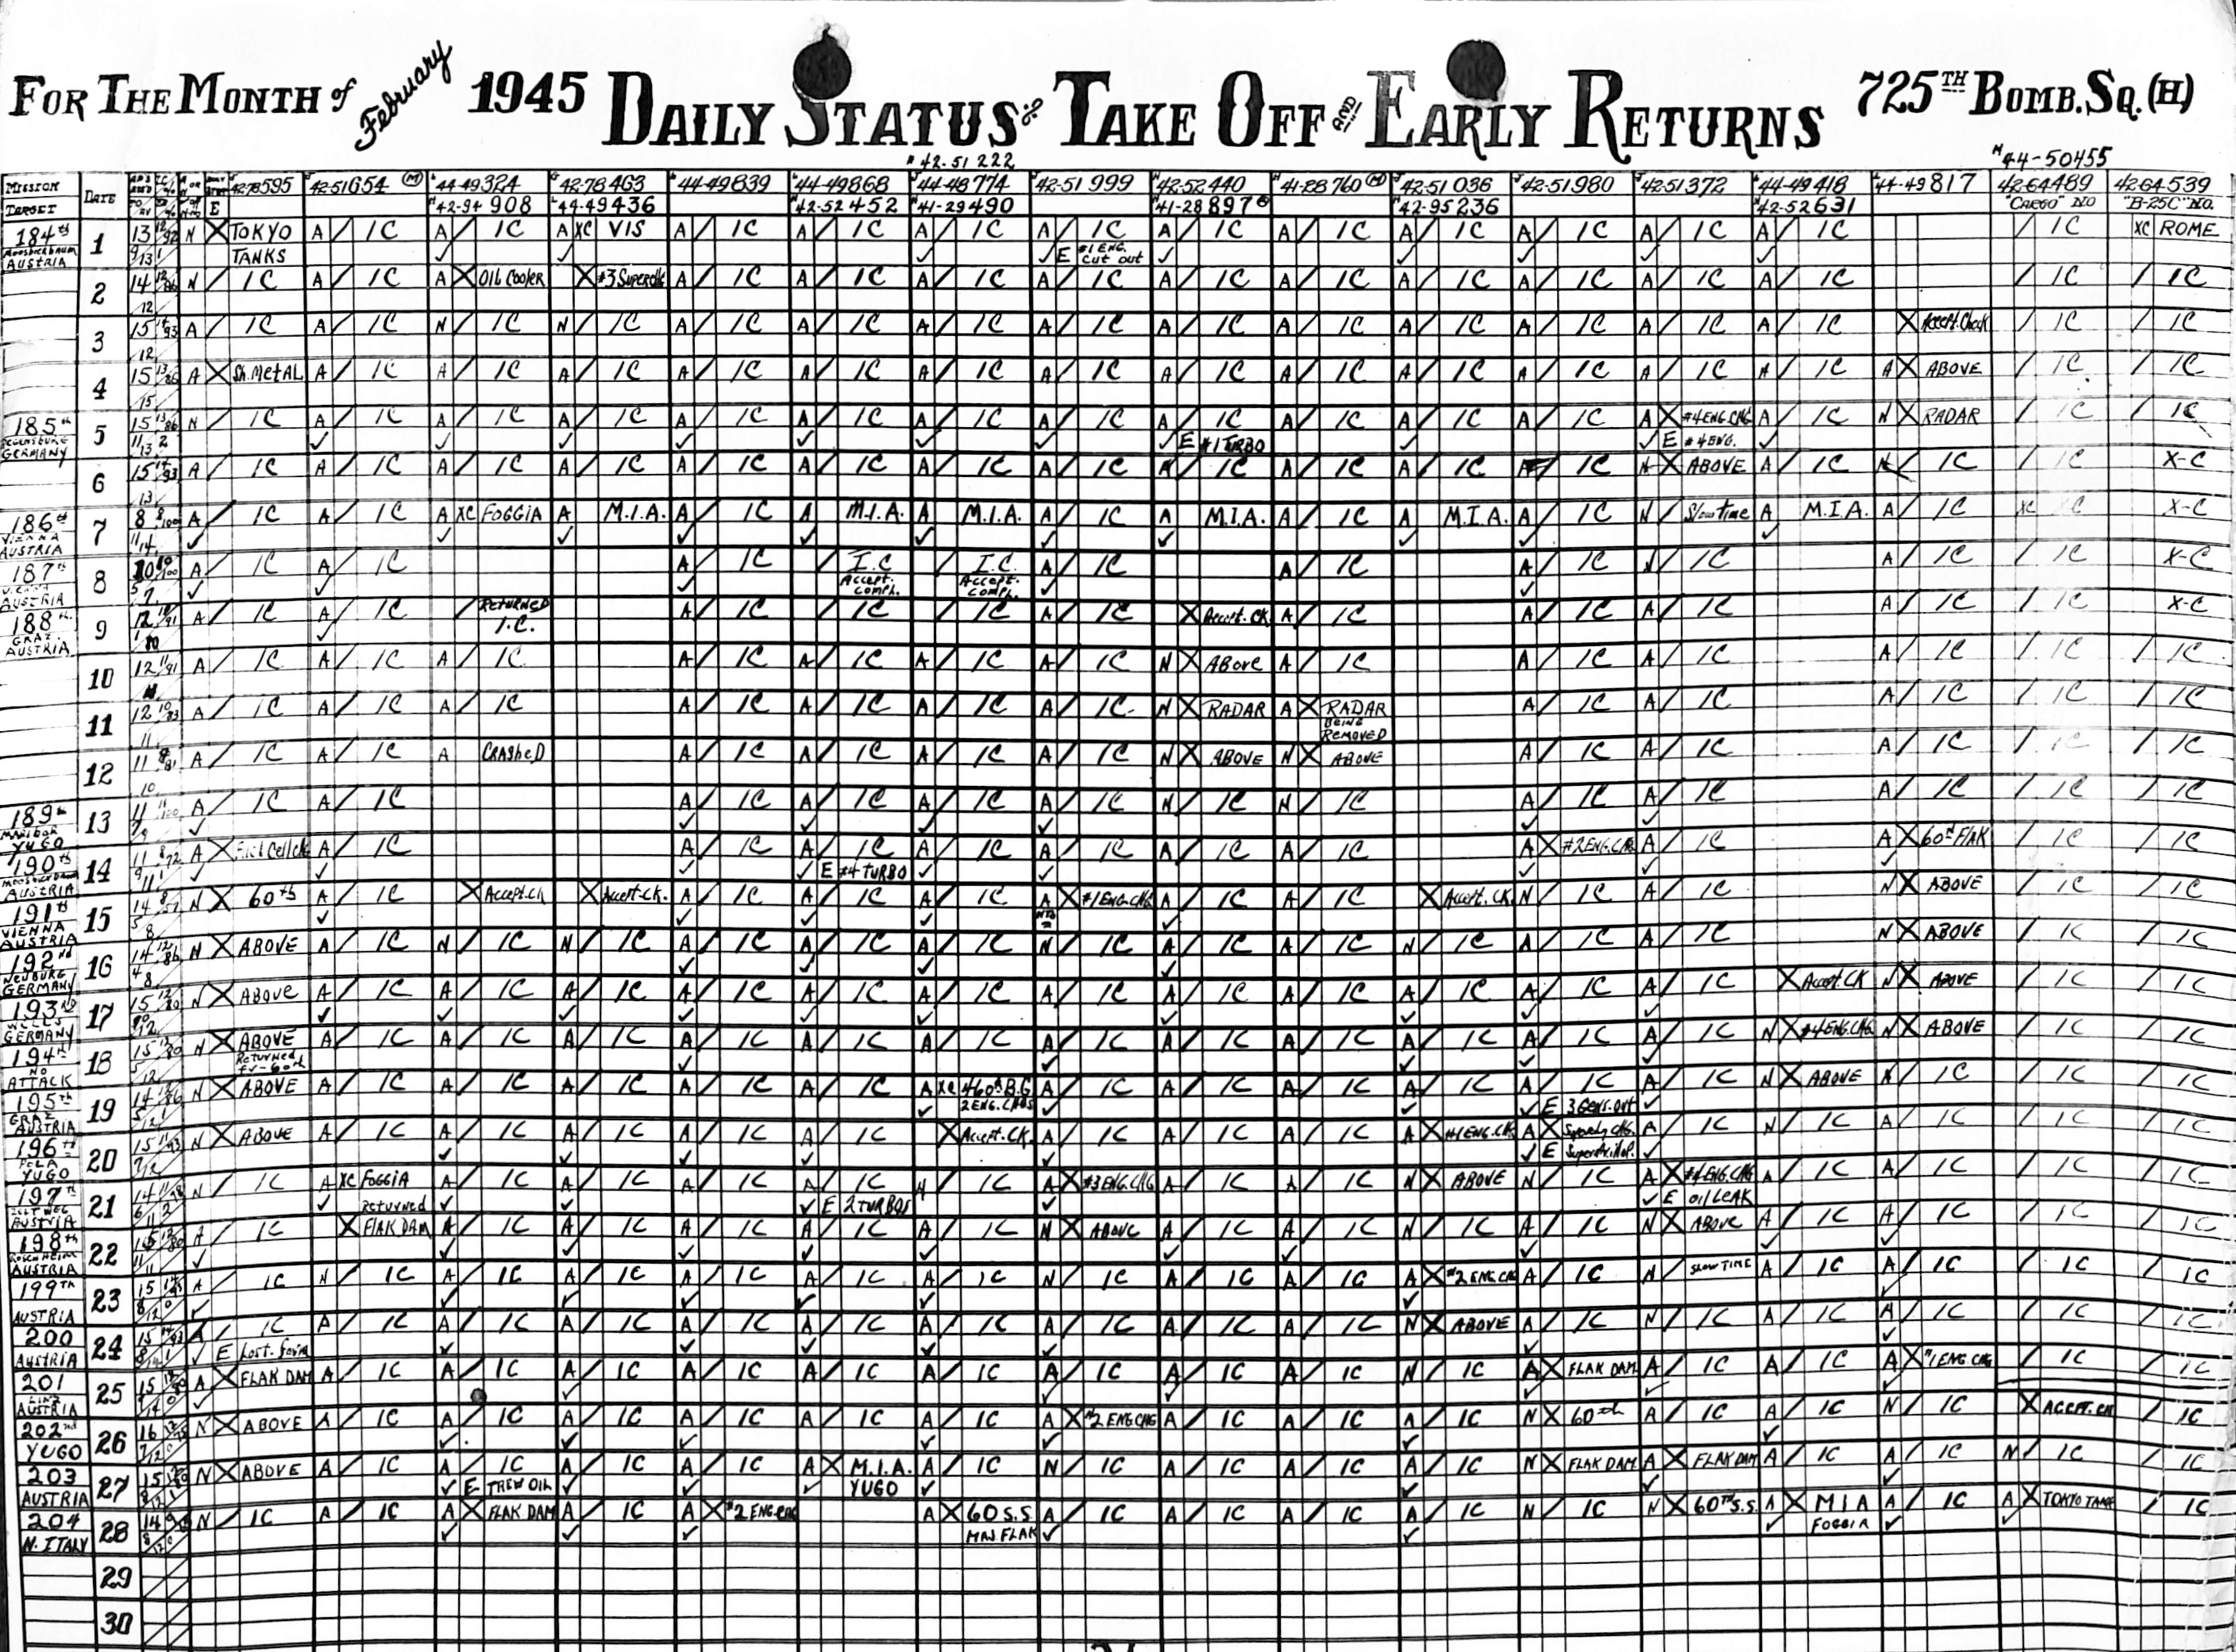 FOR THE MONTH of February 1945 DAILY STATUS of TAKE OFF AND EARLY RETURNS 725TH BOMB. SQ. (H)
42-51 222 44-50455
MISSION DATE 42-78595 42-51654 (M) 44-49324 42-78463 44-49839 44-49868 44-48774 42-51 999 42-52 440 41-28 760 (M) 42-51 036 42-51 980 42-51 372 44-49 418 44-49 817 42-64489 42-64 539
TARGET E 42-94 908 44-49 436 42-52 452 41-29 490 41-28 897 42-95 236 42-52 631 "CARGO" NO "B-25C" NO.
184th 1 13 N X TOKYO A / IC A / IC A XC VIS A / IC A / IC A / IC A / IC A / IC A / IC A / IC A / IC A / IC A / IC / IC XC ROME
AUSTRIA TANKS ✓ ✓ ✓ ✓ E #1 ENG. cut out ✓ ✓ ✓ ✓ ✓
2 14 N / IC A / IC A X OIL Cooler X #3 Superchg A / IC A / IC A / IC A / IC A / IC A / IC A / IC A / IC A / IC A / IC / IC / IC
12
3 15 A / IC A / IC N / IC N / IC A / IC A / IC A / IC A / IC A / IC A / IC A / IC A / IC A / IC A / IC X Accept. Check / IC / IC
12
4 15 A X Sh. MetAL A / IC A / IC A / IC A / IC A / IC A / IC A / IC A / IC A / IC A / IC A / IC A / IC A / IC A X ABOVE / IC / IC
15
185th 5 15 N / IC A / IC A / IC A / IC A / IC A / IC A / IC A / IC A / IC A / IC A / IC A / IC A X #4 ENG. CHG A / IC N X RADAR / IC / IC
GERMANY ✓ ✓ ✓ ✓ ✓ ✓ ✓ ✓ E #1 TURBO ✓ ✓ E #4 ENG. ✓
6 15 A / IC A / IC A / IC A / IC A / IC A / IC A / IC A / IC A / IC A / IC A / IC / IC N X ABOVE A / IC N / IC / IC X-C
13
186th 7 8 A / IC A / IC A XC FOGGIA A M.I.A. A / IC A M.I.A. A M.I.A. A / IC A M.I.A. A / IC A M.I.A. A / IC N / Slow time A M.I.A. A / IC XC X-C
VIENNA AUSTRIA ✓ ✓ ✓ ✓ ✓ ✓ ✓ ✓ ✓ ✓ ✓
187th 8 10 A / IC A / IC A / IC I.C. I.C. A / IC A / IC A / IC / IC A / IC / IC X-C
AUSTRIA ✓ ✓ ✓ Accept. Comp. Accept. Comp. ✓ ✓
188th 9 12 A / IC A / IC / RETURNED I.C. A / IC / IC / IC A / IC X Accept. CK A / IC A / IC A / IC A / IC / IC X-C
GRAZ AUSTRIA ✓
10 12 A / IC A / IC A / IC A / IC A / IC A / IC A / IC N X ABOVE A / IC A / IC A / IC A / IC / IC / IC
11 12 A / IC A / IC A / IC A / IC A / IC A / IC A / IC N X RADAR A X RADAR A / IC A / IC A / IC / IC / IC
11 BEING REMOVED
12 11 A / IC A / IC A CRASHED A / IC A / IC A / IC A / IC N X ABOVE N X ABOVE A / IC A / IC A / IC / IC / IC
10
189th 13 11 A / IC A / IC A / IC A / IC A / IC A / IC N / IC N / IC A / IC A / IC A / IC / IC / IC
MARIBOR YUGO ✓ ✓ ✓ ✓ ✓ ✓ ✓
190th 14 11 A X A / IC A / IC A / IC A / IC A / IC A / IC A / IC A X #2 ENG. CHG A / IC A X 60th FlAK / IC / IC
AUSTRIA ✓ ✓ ✓ ✓ E #4 TURBO ✓ ✓ ✓ ✓
191th 15 14 N X 60th A / IC X Accept. CK X Accept. CK. A / IC A / IC A / IC A X #1 ENG. CHG A / IC A / IC X Accept. CK N / IC A / IC N X ABOVE / IC / IC
VIENNA AUSTRIA ✓ ✓ ✓ ✓ ✓
192nd 16 14 N X ABOVE A / IC N / IC N / IC A / IC A / IC A / IC N / IC A / IC A / IC N / IC A / IC A / IC N X ABOVE / IC / IC
NEUBURG GERMANY ✓ ✓ ✓ ✓
193rd 17 15 N X ABOVE A / IC A / IC A / IC A / IC A / IC A / IC A / IC A / IC A / IC A / IC A / IC A / IC X Accept. CK N X ABOVE / IC / IC
GERMANY ✓ ✓ ✓ ✓ ✓ ✓ ✓ ✓ ✓ ✓
194th 18 15 N X ABOVE A / IC A / IC A / IC A / IC A / IC A / IC A / IC A / IC A / IC A / IC A / IC A / IC N X #4 ENG. CHG N X ABOVE / IC / IC
NO ATTACK Returned fr-60th ✓ ✓ ✓ ✓ ✓
195th 19 14 N X ABOVE A / IC A / IC A / IC A / IC A / IC A XC 460th B.G A / IC A / IC A / IC A / IC A / IC A / IC N X ABOVE / IC / IC / IC
GRAZ AUSTRIA ✓ 2 ENG. CHGS ✓ ✓ ✓ E 3 Gens. out ✓
196th 20 15 N X ABOVE A / IC A / IC A / IC A / IC A / IC X Accept. CK. A / IC A / IC A / IC A X #1 ENG. CK A X A / IC N / IC A / IC / IC / IC
POLA YUGO ✓ ✓ ✓ ✓ ✓ ✓ E ✓
197th 21 14 N / IC A XC FOGGIA A / IC A / IC A / IC A / IC / IC A X #3 ENG. CHG A / IC A / IC N X ABOVE N / IC A X #4 ENG. CHG A / IC A / IC / IC / IC
AUSTRIA ✓ Returned ✓ ✓ ✓ E 2 TURBOS ✓ ✓ E OIL LEAK
198th 22 15 A / IC X FLAK DAM A / IC A / IC A / IC A / IC A / IC N X ABOVE A / IC A / IC N / IC A / IC N X ABOVE A / IC A / IC / IC / IC
AUSTRIA ✓ ✓ ✓ ✓ ✓ ✓ ✓ ✓ ✓ ✓ ✓
199TH 23 15 A / IC N / IC A / IC A / IC A / IC A / IC A / IC N / IC A / IC A / IC A X #2 ENG. CHG A / IC N / SLOW TIME A / IC A / IC / IC / IC
AUSTRIA ✓ ✓ ✓ ✓ ✓ ✓ ✓ ✓
200 24 15 A / IC A / IC A / IC A / IC A / IC A / IC A / IC A / IC A / IC A / IC N X ABOVE A / IC N / IC A / IC A / IC / IC / IC
AUSTRIA ✓ E Lost. form ✓ ✓ ✓ ✓ ✓ ✓ ✓
201 25 15 A X FLAK DAM A / IC A / IC A / IC A / IC A / IC A / IC A / IC A / IC A / IC N / IC A X FLAK DAM A / IC A / IC A X #1 ENG. CHG / IC / IC
LINZ AUSTRIA ✓ ✓ ✓ ✓ ✓ ✓ ✓
202nd 26 16 N X ABOVE A / IC A / IC A / IC A / IC A / IC A / IC A X #2 ENG CHG A / IC A / IC A / IC N X 60th A / IC A / IC N / IC X ACCPT. CK / IC
YUGO ✓ ✓ ✓ ✓ ✓ ✓ ✓
203 27 15 N X ABOVE A / IC A / IC A / IC A / IC A X M.I.A. A / IC N / IC A / IC A / IC A / IC N X FLAK DAM A X FLAK DAM A / IC A / IC N / IC / IC
AUSTRIA ✓ E THEW OIL ✓ ✓ ✓ YUGO ✓ ✓ ✓ ✓
204 28 14 N / IC A / IC A X FLAK DAM A / IC A X #2 ENG. CHG A X 60 S.S. A / IC A / IC A / IC A / IC N / IC N X 60TH S.S. A X MIA A / IC A X TOKYO TANK / IC
N. ITALY ✓ ✓ ✓ MAJ FLAK ✓ ✓ ✓ FOGGIA ✓ ✓
29
30